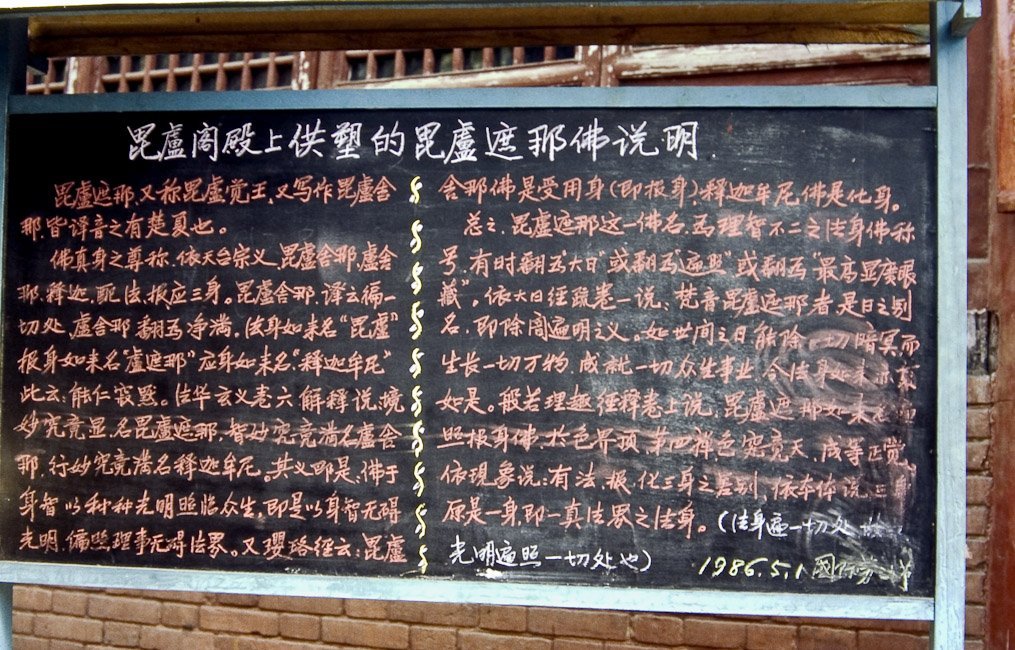 毘盧阁殿上供塑的毘盧遮那佛说明
毘盧遮那,又称毘盧觉王,又写作毘盧舍
那皆译音之有楚夏也。
佛真身之尊称,依天台宗义,毘盧舍那,盧舍
那,释迦,配法,报应三身。毘盧舍那,译云徧一
切处,盧舍那翻爲净满。法身如来名“毘盧”
报身如来名“盧遮那”应身如来名“释迦牟尼”
此云:能仁寂默。法华玄义卷六解释说:境
妙究竟显,名毘盧遮那,智妙究竟满名盧舍
那,行妙究竟满名释迦牟尼。其义即是:佛于
身智以种种光明照临众生,即是以身智无碍
光明,徧照理事无碍法界。又璎珞经云:毘盧
舍那佛是受用身(即报身),释迦牟尼佛是化身。
总之,毘盧遮那这一佛名,爲理智不二之法身佛称
号,有时翻爲“大日”或翻爲“遍照”或翻爲“最高显广眼
藏”。依大日经疏卷一说:梵音毘盧遮那者是日之别
名,即除闇遍明之义。如世间之日能除一切暗冥而
生长一切万物,成就一切众生事业,今法身如来
如是。般若理趣经释卷上说,毘盧遮那如来名
照报身佛,於色界顶,第四禅色究竟天,成等正觉,
依现象说:有法,报,化三身之差别,依本体说,三身
原是一身,即一真法界之法身。(法身遍一切处
光明遍照一切处也)
1986.5.1